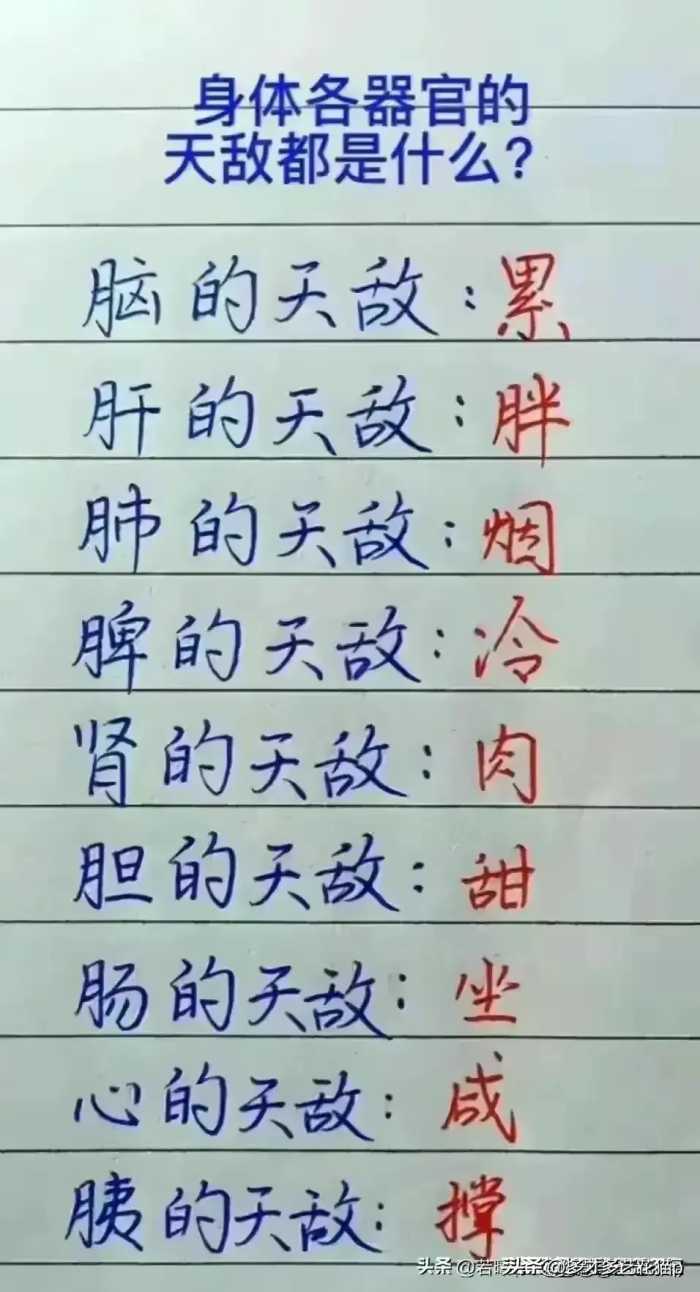 身体各器官的
天敌都是什么?
脑的天敌:累
肝的天敌:胖
肺的天敌:烟
脾的天敌:冷
肾的天敌:肉
胆的天敌:甜
肠的天敌:坐
心的天敌:咸
胰的天敌:撑
头条